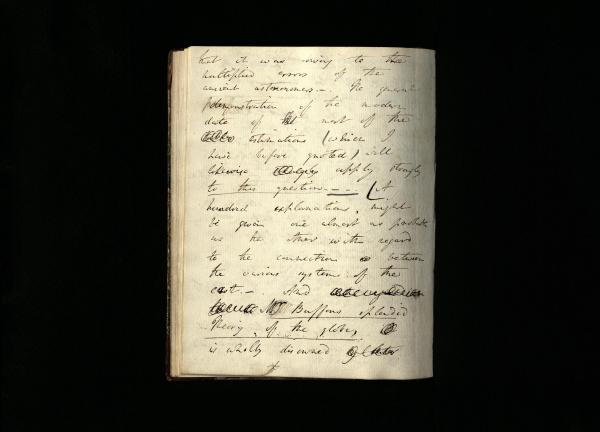 but it was owing to the
multiplied errors of the
ancient astronomers. – The general
demonstration of the modern
date of the most of the
estimations (which I
have before quoted) will
likewise apply strongly
to this question. – – . (A
hundred explanations, might
be given one almost as probable
as the other with regard
to the connection between
the various systems of the
east. – And
Mr Buffons splendid
Theory, of the globe,
is wholly disowned